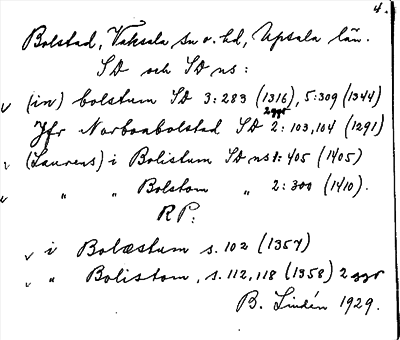 4.
Bolstad, Vaksala sn o. hd, Upsala län.
SD och SD ns:
v (in) bolstum SD 3:283 (1316), 5:309 (1344)
2 ggr
Jfr Norboabolstad SD 2:103,104 (1291)
v (Laurens) i Bolistum SD ns 1:405 (1405)
v " " Bolstom " 2:300 (1410).
RP:
v i Bolæstum s. 102 (1357)
v " Bolistom, s. 112, 118 (1358) 2 ggr
B. Lindén 1929.